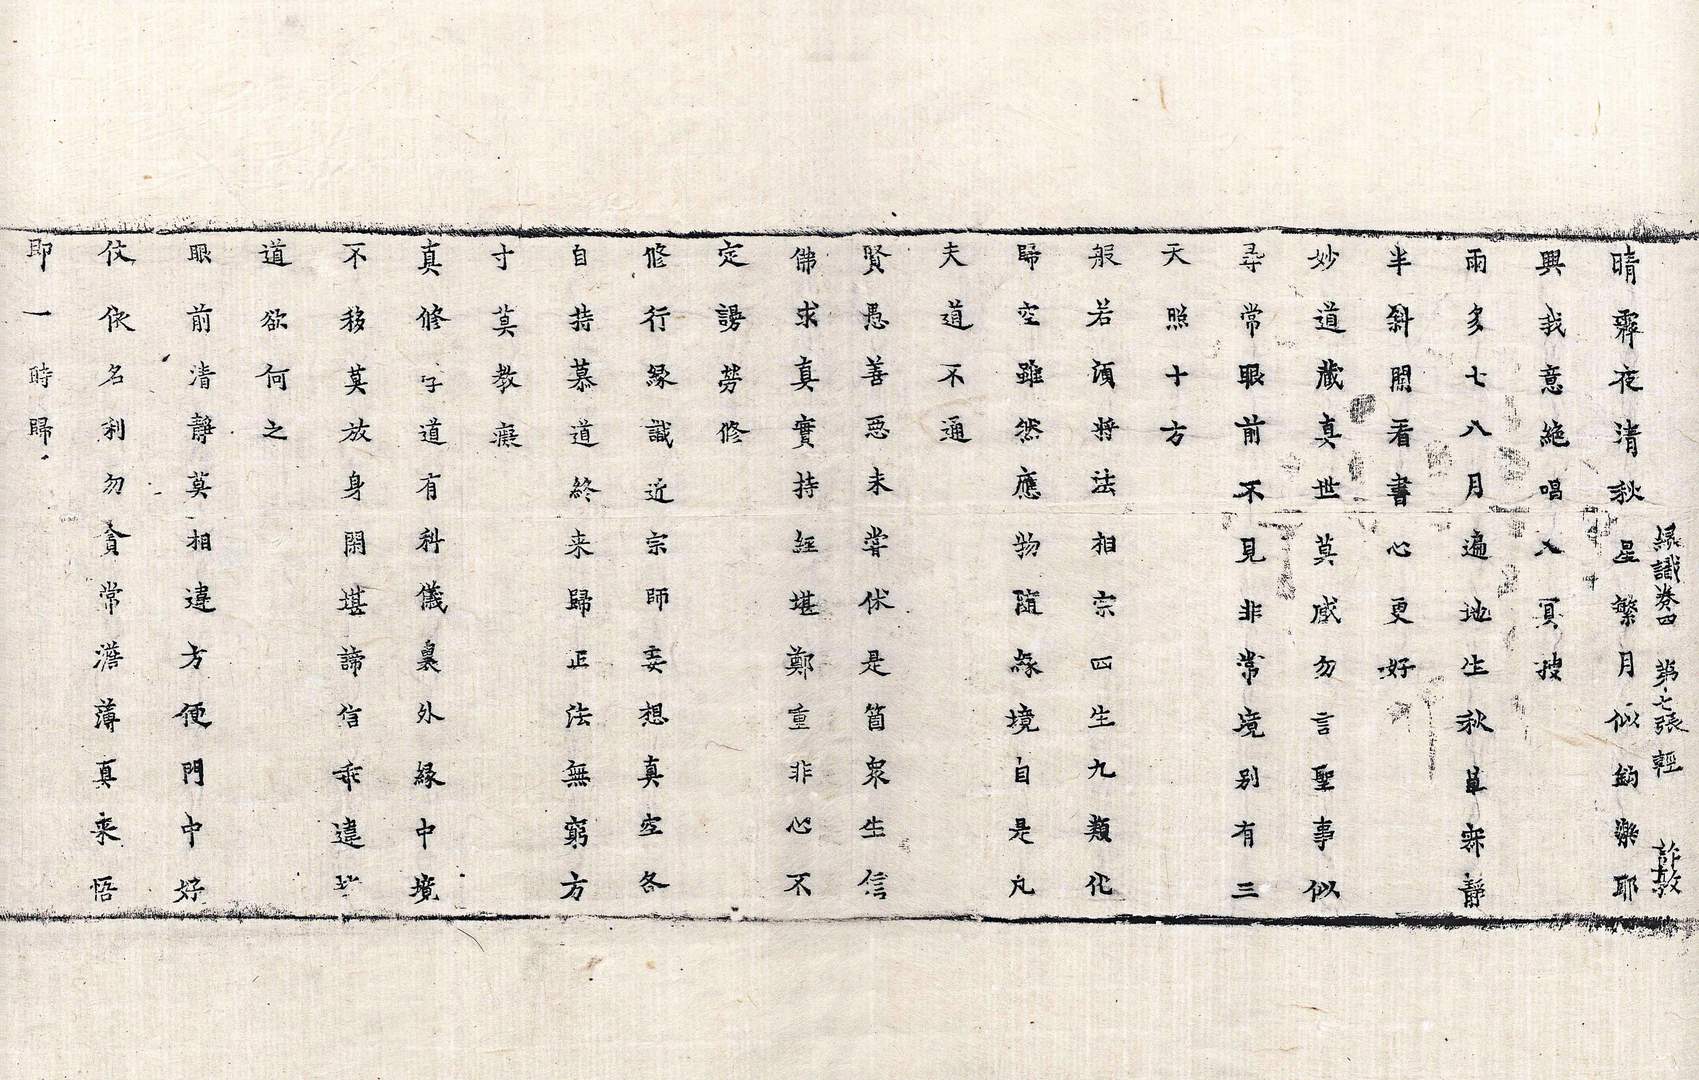 縁識卷四　第七張　輕　許敦
晴霽夜清秋星繁月似鈎樂耶
興我意絶唱入冥搜
雨多七八月遍地生秋草寂静
半斜開看書心更好
妙道藏真世莫感勿言聖事似
尋常眼前不見非常境别有三
天照十方
般若須將法相宗四生九類化
歸空雖然應物随緣境自是凡
夫道不通
賢愚善惡未甞伏是箇衆生信
佛求真實持經堪鄭重非心不
定謗勞修
修行縁識近宗師妄想真空各
自持慕道終来歸正法無窮方
寸莫教癡
真修字道有科儀裏外縁中境
不移莫放身閑堪諦信乖違
道欲何之
眼前清靜莫相違方便門中好
伎依名利勿貪常澹薄真来悟
即一時歸